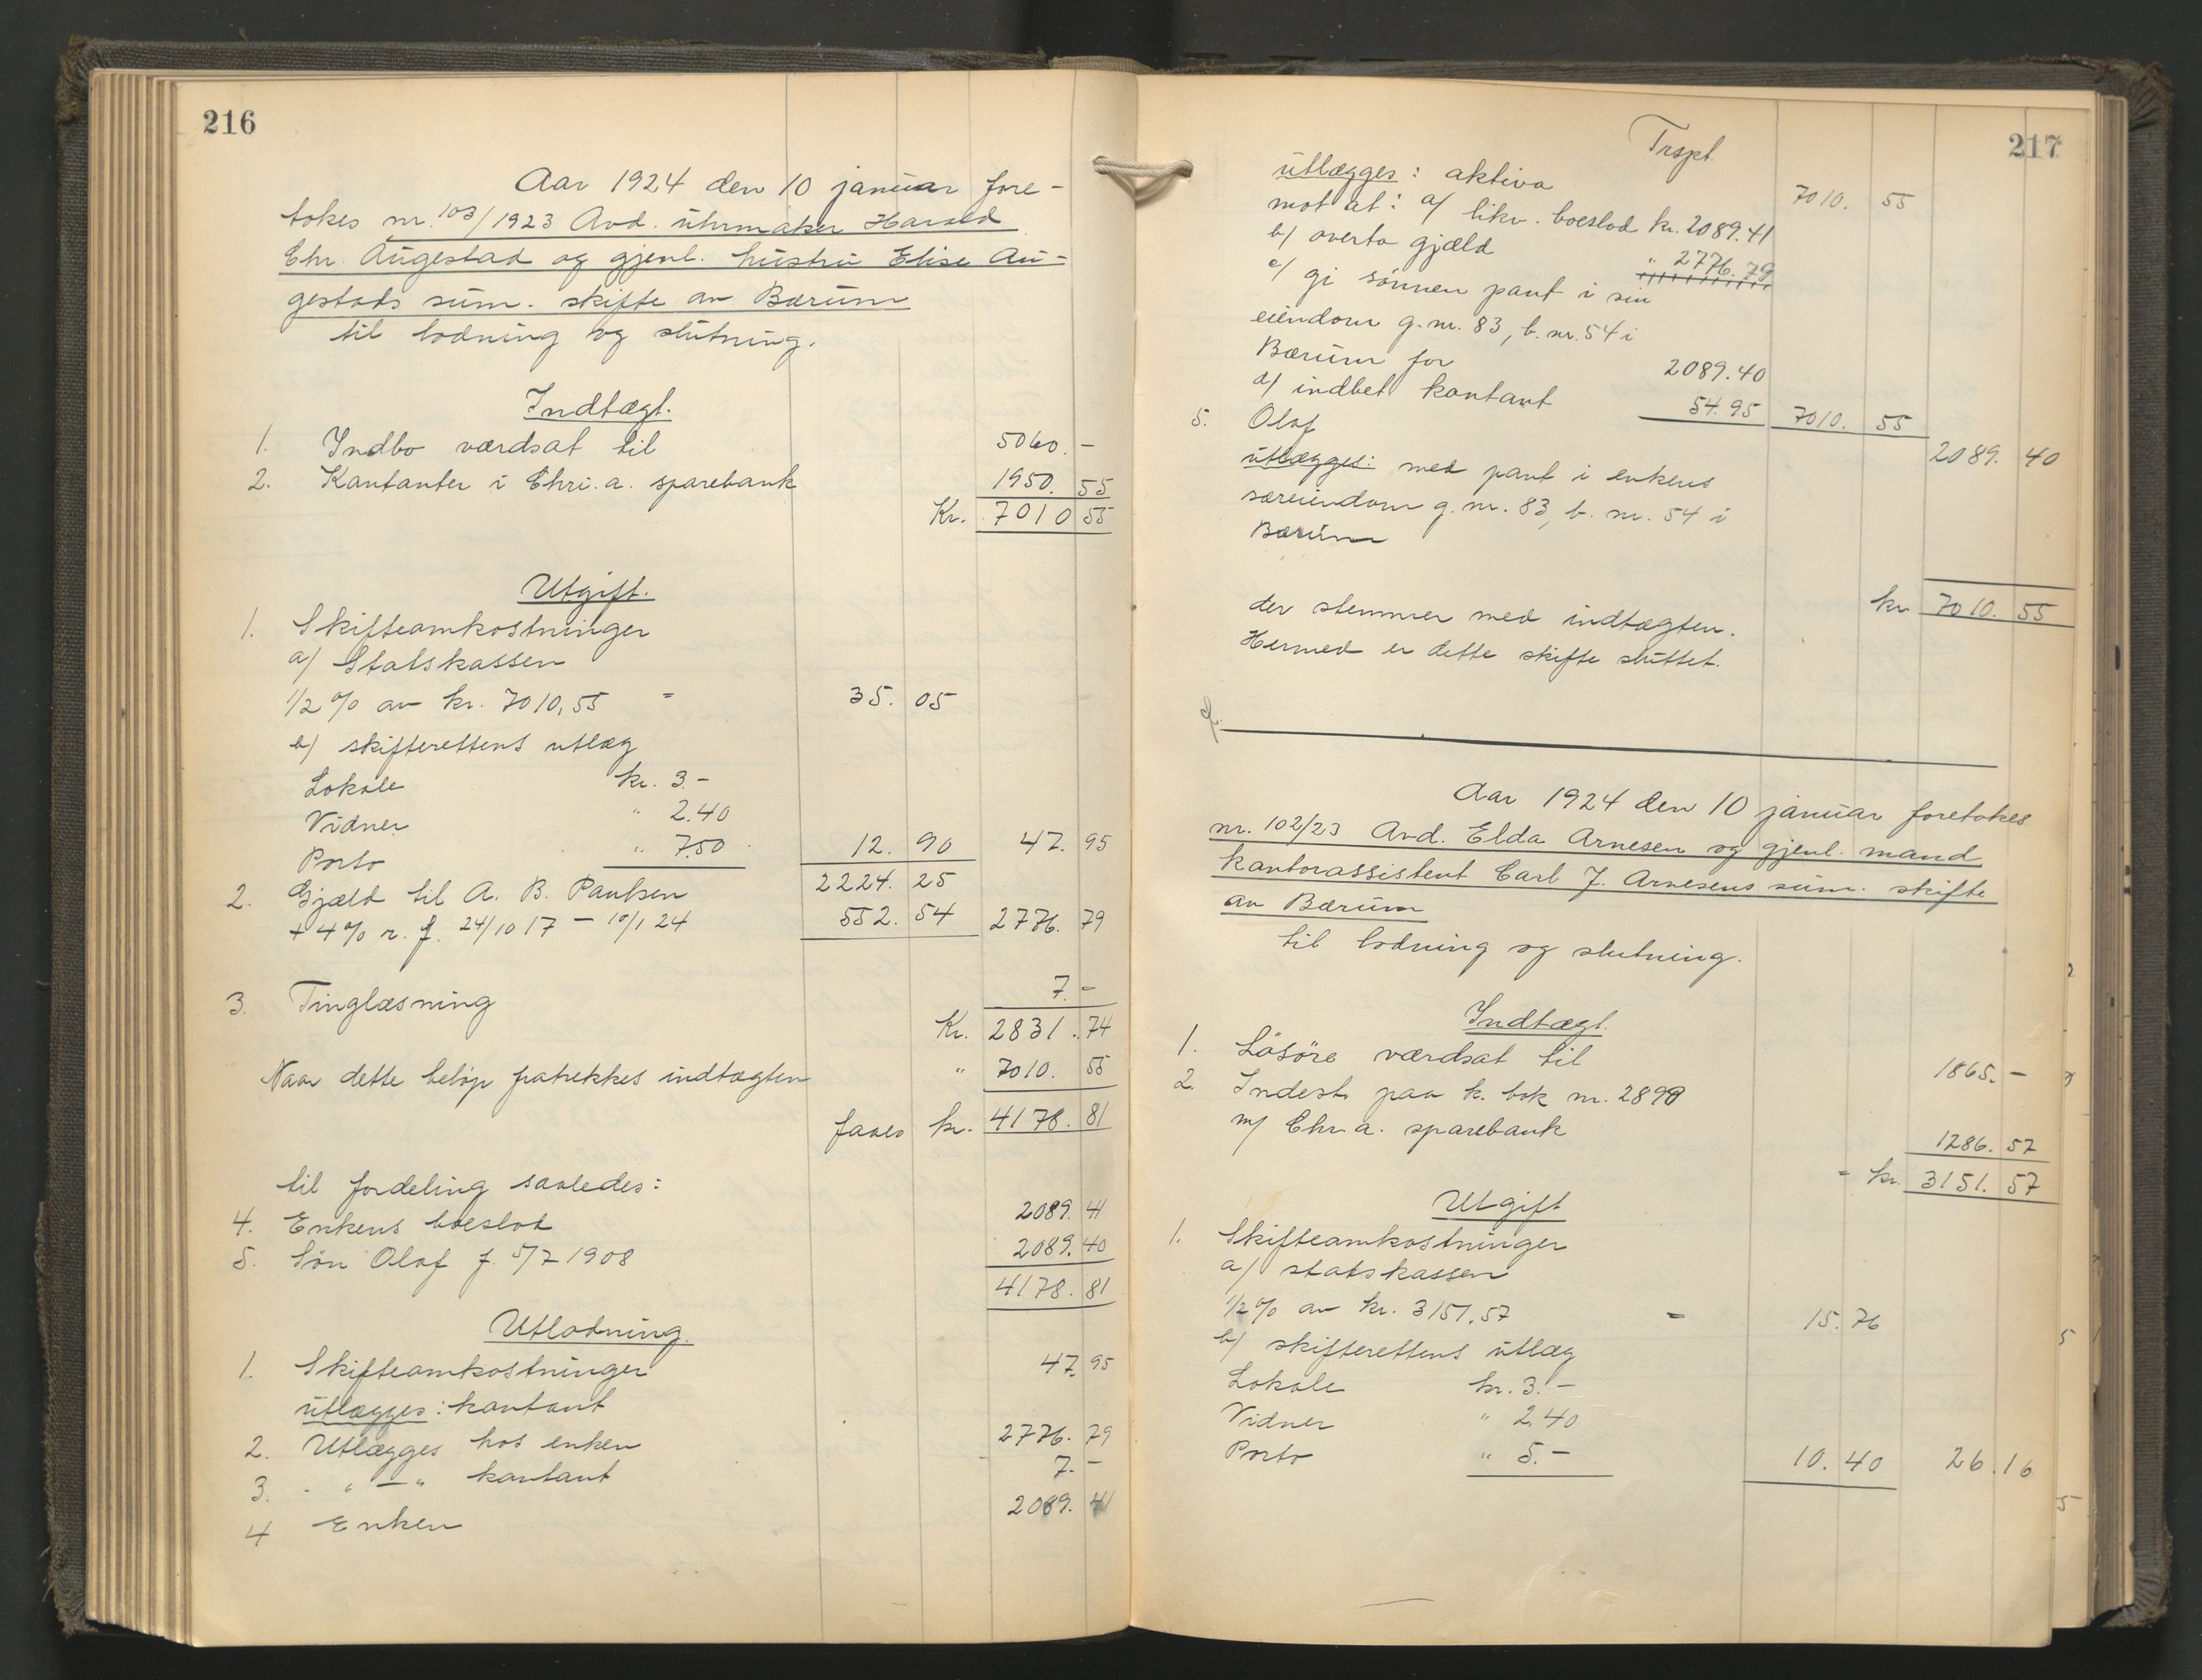 216
Aar 1924 den 10 januar fore-
tokes nr. 103/1923 Avd. uhrmaker Harald
Chr. Augestad og gjenl. hustru Elise Au-
gestads sum. skifte av Bærum
til lodning og slutning.
Indtægt.
1. Indbo værdsat til 5060. -
2. Kontanter i Chri.a. sparebank 1950. 55
Kr. 7010 55
Utgift.
1. Skifteomkostninger
a/ Statskassen
1/2 % av kr. 7010,55 = 35. 05
b/ skifterettens utlæg
Lokale kr. 3.-
Vidner " 2.40
Porto " 7.50 12. 90 47. 95
2. Gjæld til A. B. Paulsen 2224. 25
+ 4% r. f. 24/10 17 - 10/1 24 552. 54 2776. 79
3. Tinglæsning 7. -
Kr. 2831. 74
Naar dette beløp fratrekkes indtægten " 7010. 55
faaes kr. 4178. 81
til fordeling saaledes:
4. Enkens boeslod 2089. 41
5. Søn Olaf f. 5/7 1908 2089. 40
4178. 81
Utlodning.
1. Skifteomkostninger 47. 95
utlægges: kontant
2. Utlægges hos enken 2776. 79
3. " - " kontant 7. -
4 Enken 2089. 41
217
Trspt.
utlægges: aktiva 7010. 55
mot at: a/ likv. boeslod kr. 2089.41
b/ overta gjæld " 2776.79
c/ gi sønnen pant i sin
eiendom g.nr. 83, b.nr. 54 i
Bærum for 2089.40
d/ indbet kontant 54.95 7010. 55
5. Olaf 2089. 40
utlægges: med pant i enkens
særeiendom g.nr. 83, b.nr. 54 i
Bærum
kr 7010. 55
der stemmer med indtægten.
Hermed er dette skifte sluttet.
Aar 1924 den 10 januar foretokes
nr. 102/23 Avd. Elda Arnesen og gjenl. mand
kontorassistent Carl J. Arnesens sum. skifte
av Bærum
til lodning og slutning.
Indtægt.
1. Løsøre værdsat til 1865. -
2. Indest. paa k. bok nr. 2898
m/ Chr.a. sparebank 1286. 57
= kr. 3151. 57
Utgift
1. Skifteomkostninger
a/ statskassen
1/2 % av kr. 3151.57 = 15.76
b/ skifterettens utlæg
Lokale kr. 3.-
Vidner " 2.40
Porto " 5.- 10. 40 26.16